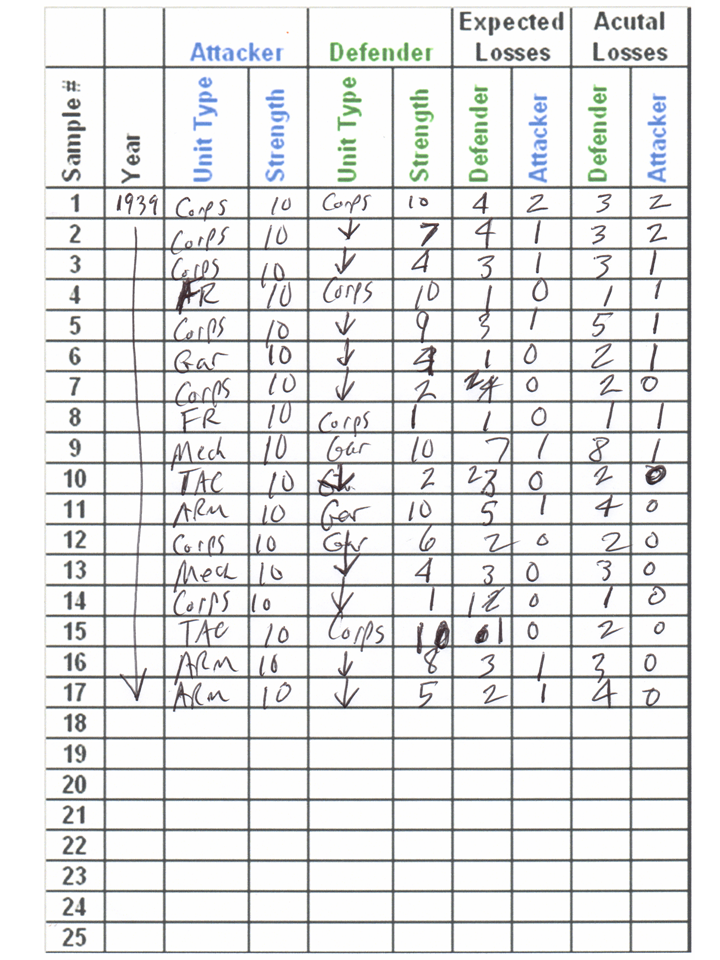 Expected Acutal
Attacker Defender Losses Losses
Sample # Year Unit Type Strength Unit Type Strength Defender Attacker Defender Attacker
1 1939 Corps 10 Corps 10 4 2 3 2
2 Corps 10 ↓ 7 4 1 3 2
3 Corps 10 ↓ 4 3 1 3 1
4 10 Corps 10 1 0 1 1
5 Corps 10 ↓ 9 3 1 5 1
6 Gar 10 ↓ 1 0 2 1
7 Corps 10 ↓ 2 0 2 0
8 FR 10 Corps 1 1 0 1 1
9 Mech 10 Gar 10 7 1 8 1
10 TAC 10 ↓ 2 0 2 0
11 ARM 10 Gar 10 5 1 4 0
12 Corps 10 Gar 6 2 0 2 0
13 Mech 10 ↓ 4 3 0 3 0
14 Corps 10 ↓ 1 0 1 0
15 TAC 10 Corps 10 0 2 0
16 ARM 10 ↓ 8 3 1 3 0
17 ARM 10 ↓ 5 2 1 4 0
18
19
20
21
22
23
24
25